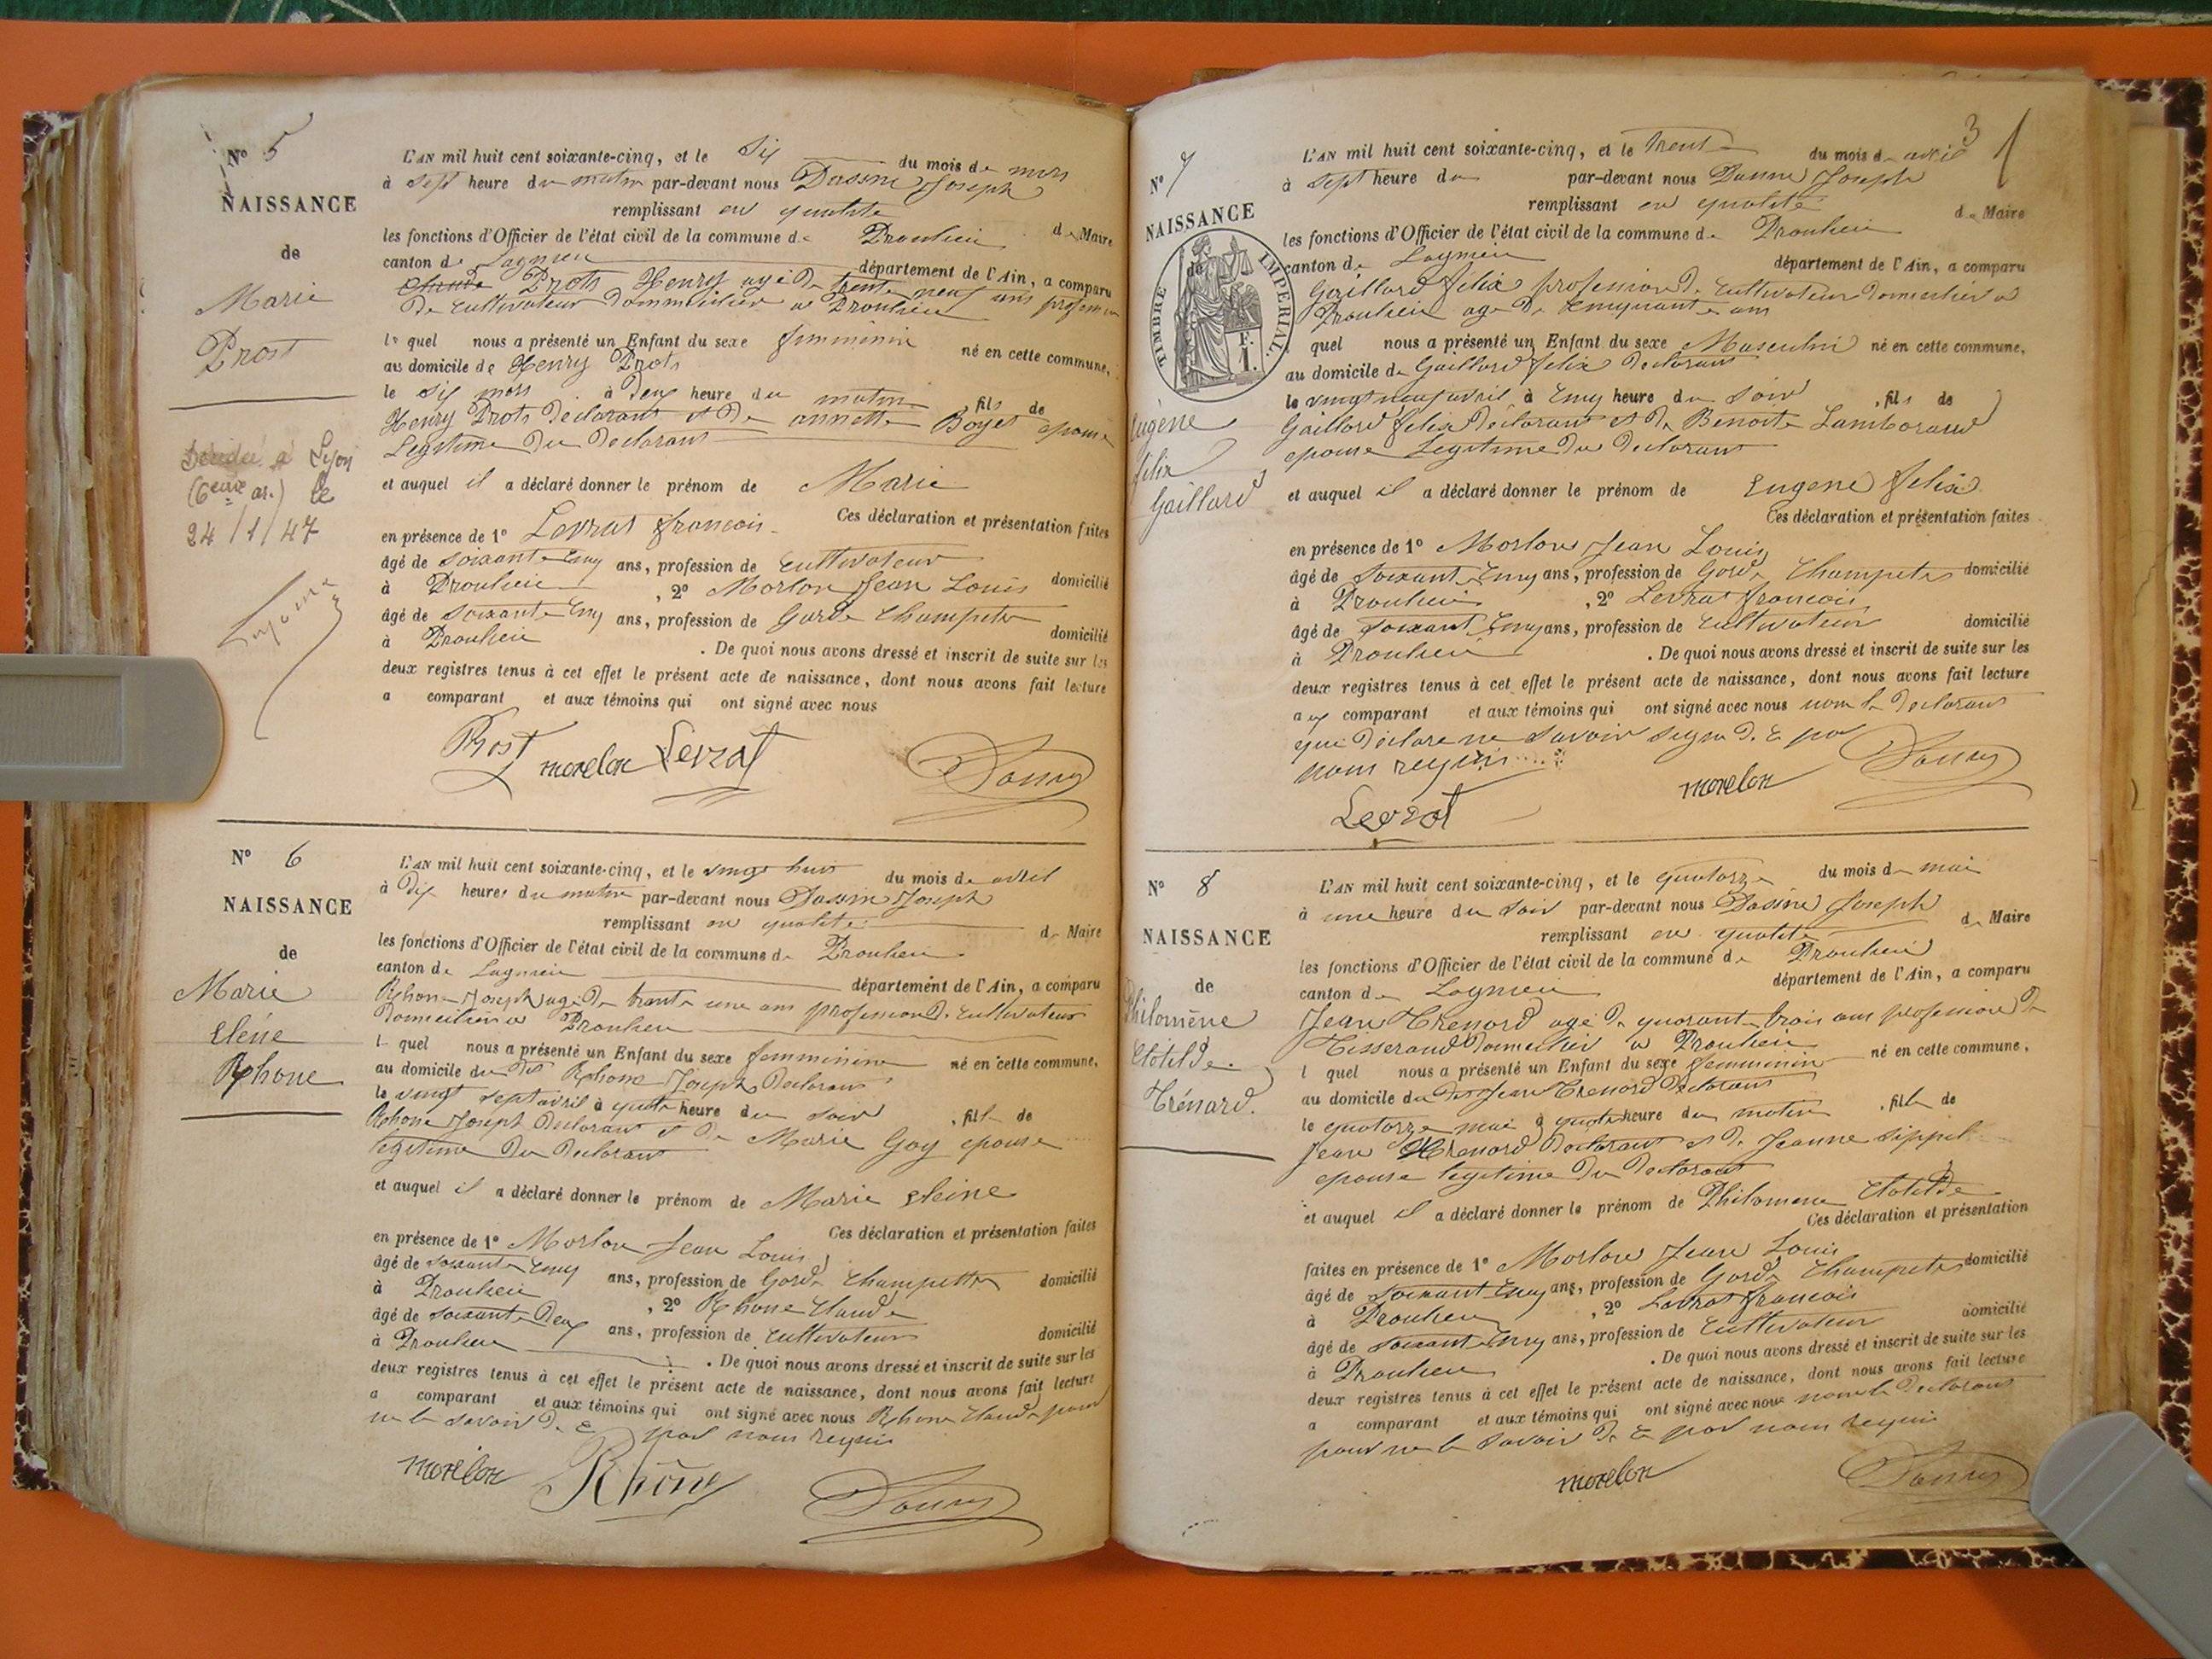 N° 5
NAISSANCE
de
Marie
Prost
Lyon
(6eme ar.) le
24/1/47
L'AN mil huit cent soixante-cinq, et le Six du mois de mars
à sept heure du matin par-devant nous Dassin Joseph
remplissant en qualite de Maire
les fonctions d'Officier de l'état civil de la commune de Proulieu
canton de Lagnieu département de l'Ain, a comparu
Prots Henry age de trente neuf ans profession
de cultivateur dommicilier a Proulieu
le quel nous a présenté un Enfant du sexe femminin né en cette commune,
au domicile de Henry Prots
le six mars à deux heure du matin fils de
Henry Prots declarant et de annette Boyet epouse
Legitime du declarant
et auquel il a déclaré donner le prénom de Marie
Ces déclaration et présentation faites
en présence de 1° Levrat francois
âgé de soixante cinq ans, profession de cultivateur domicilié
à Proulieu , 2° Morlon Jean Louis
âgé de soixante cinq ans, profession de Garde Champetre domicilié
à Proulieu . De quoi nous avons dressé et inscrit de suite sur les
deux registres tenus à cet effet le présent acte de naissance, dont nous avons fait lecture
a comparant et aux témoins qui ont signé avec nous
Prost morelon Levrat
N° 6
NAISSANCE
de
Marie
eléne
Rhone
L'AN mil huit cent soixante-cinq, et le vingt huit du mois de avril
à dix heures du matin par-devant nous Dassin Joseph
remplissant en qualite de Maire
les fonctions d'Officier de l'état civil de la commune de Proulieu
canton de Lagnieu département de l'Ain, a comparu
Rhone Joseph age de trante une ans profession de cultivateur
domicilier a Proulieu
le quel nous a présenté un Enfant du sexe femminine né en cette commune,
au domicile du dit Rhone Joseph declarant
le vingt sept avril à quatre heure du soir , fille de
Rhone Joseph declarant et de Marie Goy epouse
legitime du declarant
et auquel il a déclaré donner le prénom de Marie eleine
Ces déclaration et présentation faites
en présence de 1° Morlon Jean Louis
âgé de soixante cinq ans, profession de Garde Champettre domicilié
à Proulieu , 2° Rhone Claude
âgé de soixante deux ans, profession de cultivateur domicilié
à Proulieu . De quoi nous avons dressé et inscrit de suite sur les
deux registres tenus à cet effet le présent acte de naissance, dont nous avons fait lecture
a comparant et aux témoins qui ont signé avec nous Rhone Claude pour
ne le savoir de ce par nous requis
morelon Rhône
3
1
N° 7
NAISSANCE
de
TIMBRE IMPERIAL
F.
1.
Eugène
félix
Gaillard
L'AN mil huit cent soixante-cinq, et le trente du mois de avril
à sept heure du par-devant nous Dassin Joseph
remplissant en qualité de Maire
les fonctions d'Officier de l'état civil de la commune de Proulieu
canton de Lagnieu département de l'Ain, a comparu
Gaillard felix profession de cultivateur domicilier a
Proulieu age de cinquante ans
quel nous a présenté un Enfant du sexe Masculin né en cette commune,
au domicile de Gaillard felix declarant
le vingt neuf avril à cinq heure du soir , fils de
Gaillard felix declarant et de Benoite Lamborand
epouse Legitime du declarant
et auquel il a déclaré donner le prénom de Eugene felix
Ces déclaration et présentation faites
en présence de 1° Morlon Jean Louis
âgé de soixante cinq ans, profession de Garde Champetre domicilié
à Proulieu , 2° Levrat francois
âgé de soixante cinq ans, profession de cultivateur domicilié
à Proulieu . De quoi nous avons dressé et inscrit de suite sur les
deux registres tenus à cet effet le présent acte de naissance, dont nous avons fait lecture
aux comparant et aux témoins qui ont signé avec nous non le declarant
qui declare ne savoir signe de ce par
nous requis
morelon
Levrat
N° 8
NAISSANCE
de
Philomène
Clotilde
Trénard.
L'AN mil huit cent soixante-cinq, et le quatorze du mois de mai
à une heure du soir par-devant nous Dasine Joseph
remplissant en qualité de Maire
les fonctions d'Officier de l'état civil de la commune de Proulieu
canton de Lagnieu département de l'Ain, a comparu
Jean Trenard age de quarante trois ans profession de
Tisserand domicilier a Proulieu
l quel nous a présenté un Enfant du sexe femminin né en cette commune,
au domicile du dit Jean Trenard declarant
le quatorze mai à quatre heure du matin , fille de
Jean Trenard declarant et de Jeanne Sippel
epouse legitime du declarant
et auquel il a déclaré donner le prénom de Philomene Clotilde
Ces déclaration et présentation
faites en présence de 1° Morlon Jean Louis
âgé de soixante cinq ans, profession de Garde Champetre domicilié
à Proulieu , 2° Levrat francois
âgé de soixante cinq ans, profession de cultivateur domicilié
à Proulieu . De quoi nous avons dressé et inscrit de suite sur les
deux registres tenus à cet effet le présent acte de naissance, dont nous avons fait lecture
a comparant et aux témoins qui ont signé avec nous non le declarant
pour ne le savoir de ce par nous requis
morelon